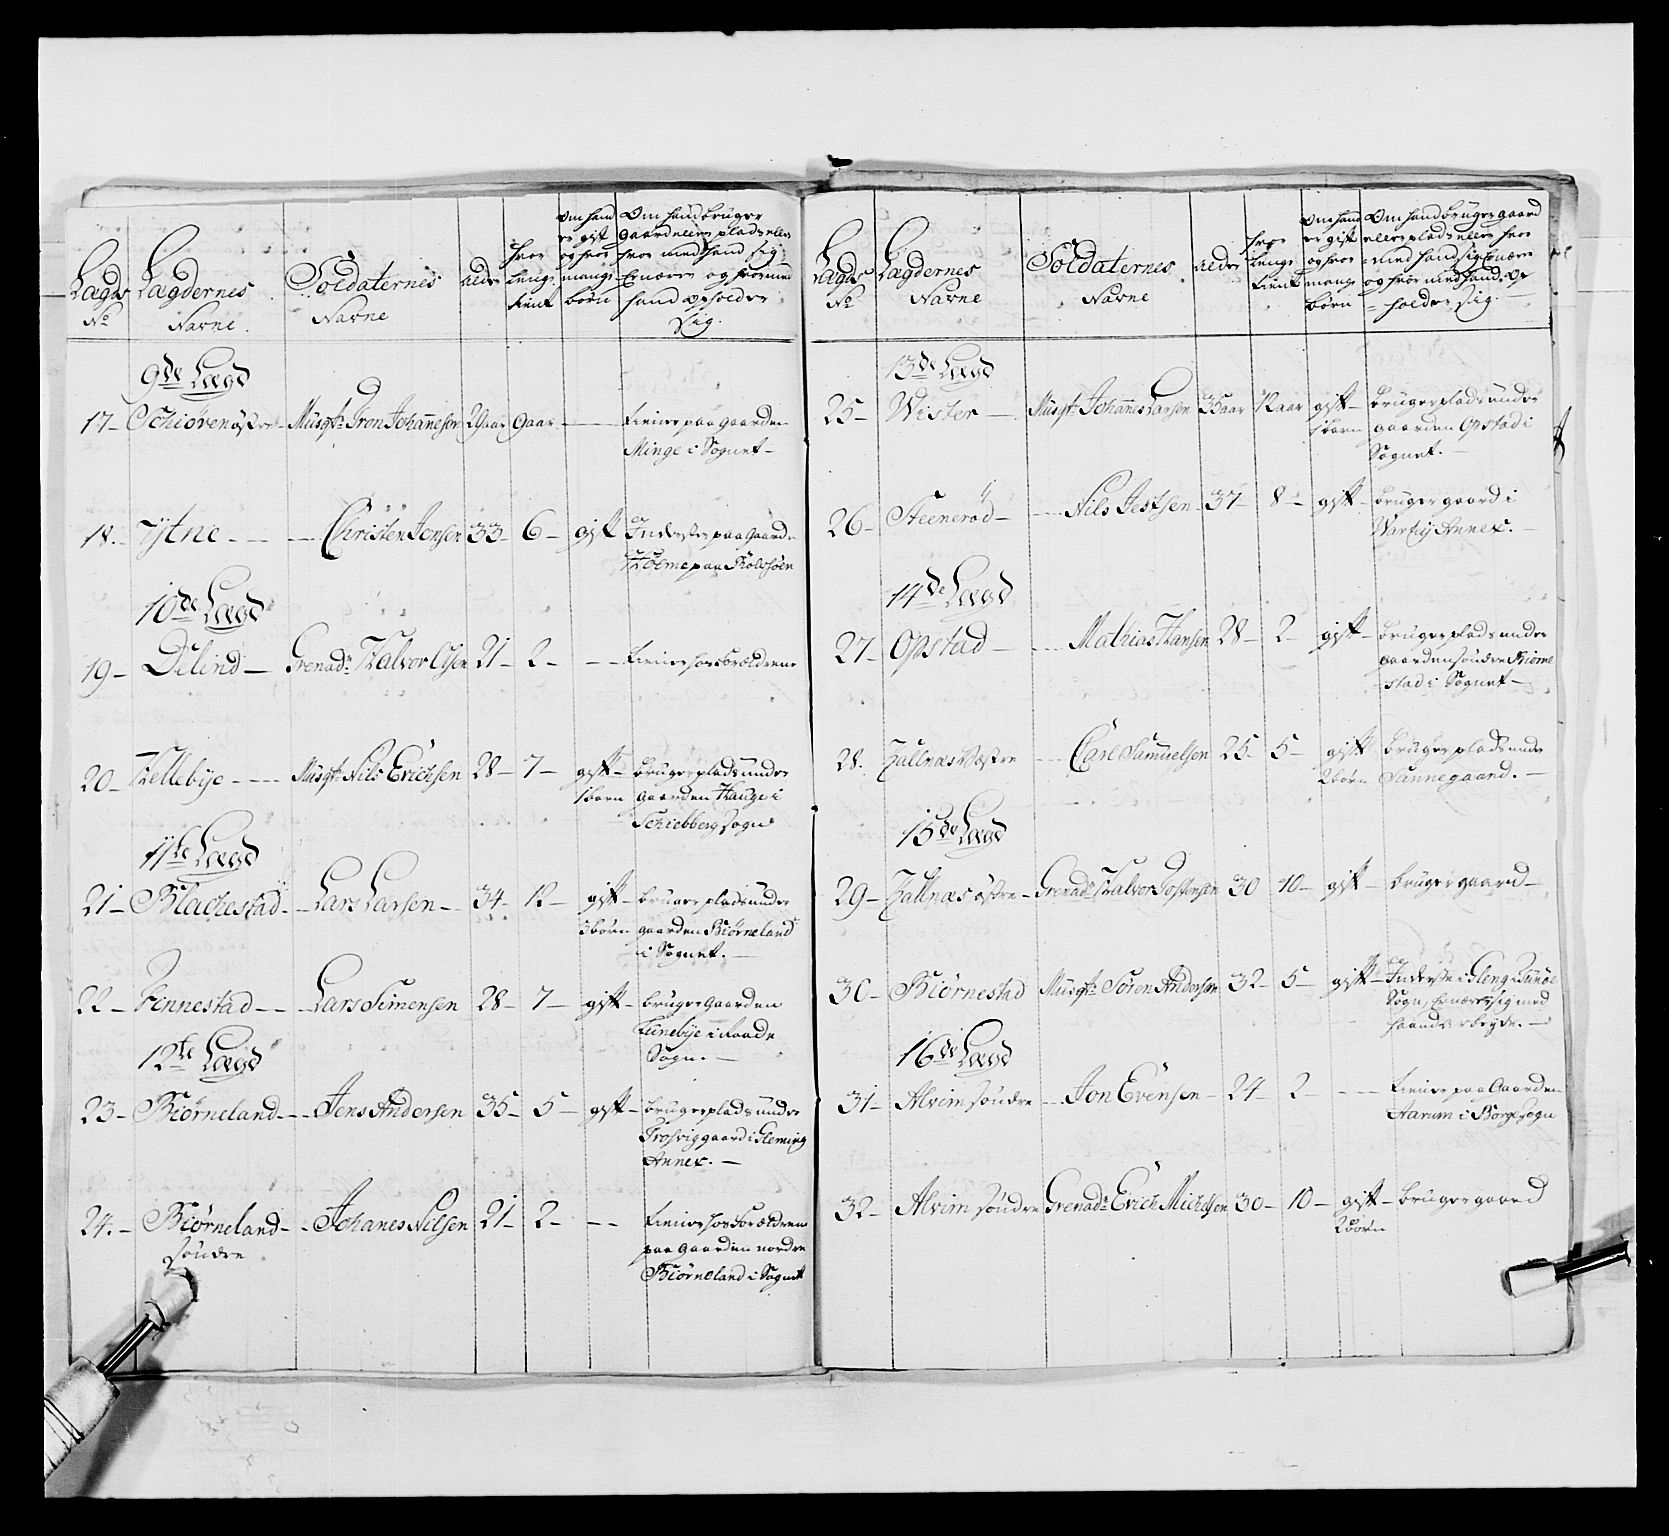 Lægds No
Lægdernes Navne.
Soldaternes Navne
alder
hvor lenge tient
om hand er gift og hvor mange børn
Om hand bruger gaard eller plads eller hvor med hand sig Ernærer og hvor med hand opholder sig.
9de Lægd
17 – Schiøren østre – Musqt: Iron Johannesen 29 aar 9 aar – tiener paa gaarden
Minge i Sognet –
18. – Ÿtne – – – Christen Jensen 33 – 6 – gift Inderster paa Gaarde
Holme paa Rolfsøen
10de Lægd
19 – Delind – Grenad: Halvor Olsen 21 – 2 – – – tiener hos Forældrene
20 – Hellebye – – – Musqt: Nils Erichsen 28 – 7 – gift – bruger plads under
1 barn gaarden Hauge i
Schiebberg Sogn
11te Lægd
21 – Blachestad – – Lars Larsen – 34 – 12 – gift – bruger plads under
3 børn gaarden Biørneland
i Sognet. –
22 – Fennestad – – – Lars Simensen 28 – 7 – gift – bruger Gaarden
Tunebye i Raade
Sogn. –
12te Lægd
23 – Biørneland – – Jens Andersen 35 – 5 – gift – bruger plads under
Trosvig gaard i Glemmig
Annex. –
24. – Biørneland – – Johanes Nilsen 21 – 2 – – – tiener hos Forældrene
søndre paa Gaarden nordre
Biørneland i Sognet
Lægds No
Lægdernes Navne
Soldaternes Navne
alder
hvor lenge tient
om hand er gift og hvor mange børn
Om hand bruger gaard eller plads eller hvor med hand sig Ernærer og hvor med hand op holder sig.
13de Lægd
25 – Wister – Musqt: Johannes Larsen 35 aar 12 aar gift – bruger plads under
1 barn gaarden Opstad i
Sognet. –
26 – Steenerød – – – Nils Jestsen 37 – 8 – gift – bruger gaard i
Warteig Annex. –
14de Lægd
27 – Opstad – – – Mathias Hansen 28 – 2 – gift – bruger plads under
gaarden søndre Biørne
stad i Sognet –
28. Zallnæs Vestre – – Carl Samuelsen 25 – 5 – gift bruger plads under
2 børn Sannegaard. –
15de Lægd
29 – Zallnæs østre – Grenad: Halvor Jostensen 30 10 – gift – bruger gaard –
30 – Biørnestad Musqt: Søren Andersen 32 – 5 – gift – Inderste i Gleng i Tunøe
Sogn, Ernærer sig med
haand arbeyde. –
16de Lægd
31 – Alvim søndre – – Jon Evensen – 24 – 2 – – – – tiener paa Gaarden
Aarum i Borge Sogn
32 – Alvim søndre Grenad: Erich Michelsen 30 – 10 – gift – bruger gaard
2 børn